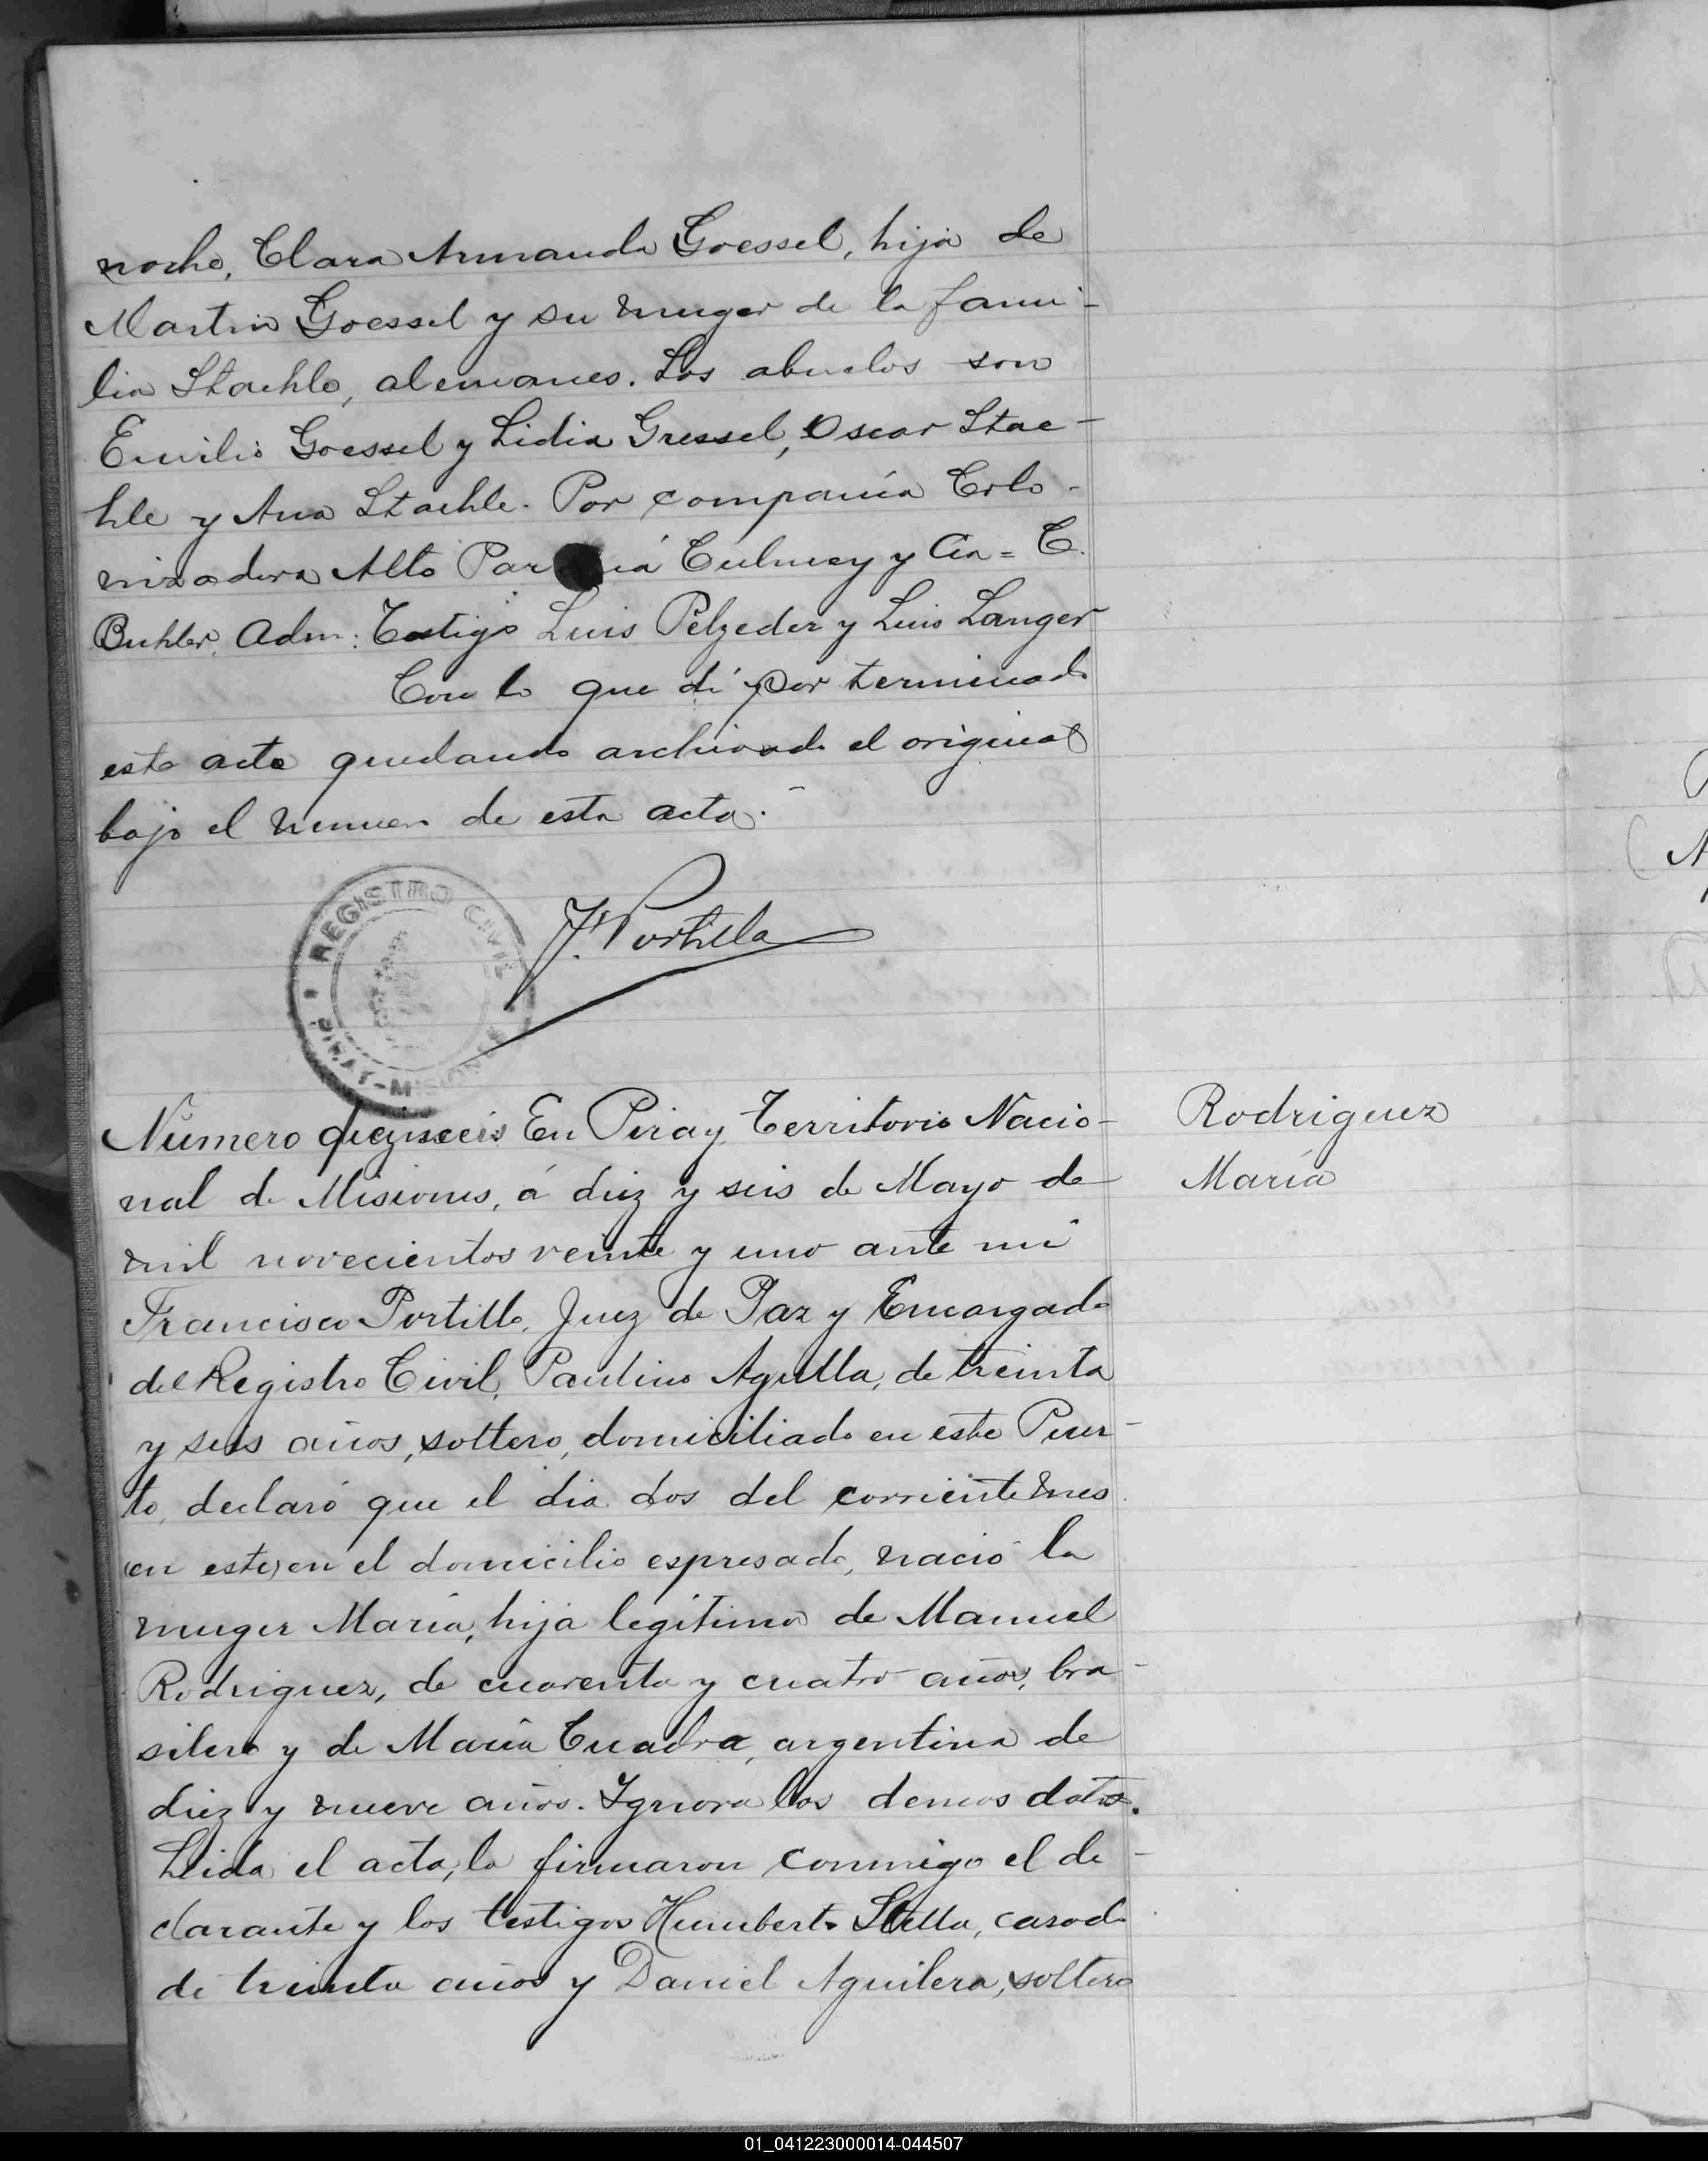 noche, Clara Armanda Goessel, hija de
Martin Goessel y su muger de la fami-
lia Staehle, alemanes. Los abuelos son
Emilio Goessel y Lidia Gressel, Oscar Stae-
hle y Ana Staehle. Por compania Colo-
nizadora Alto Paraná Culmey y Cia = C.
Buhler, Adm: Testigo Luis Pelzeder y Luis Langer
Con lo que di por terminado
este acto quedando archivado el original
bajo el numero de esta acta.-
REGISTRO CIVIL
PIRAY-MISIONES
F. Portillo
Número dieziseis. En Piray, Territorio Nacio-
nal de Misiones, á diez y seis de Mayo de
mil novecientos veinte y uno ante mi
Francisco Portillo, Juez de Paz y Encargado
del Registro Civil, Paulino Agulla, de treinta
y seis años, soltero, domiciliado en este Puer-
to, declaró que el dia dos del corriente mes
(en este) en el domicilio espresado, nació la
muger Maria, hija legitima de Manuel
Rodriguez, de cuarenta y cuatro años, bra-
silero y de María Cuadra, argentina de
diez y nueve años. Ignora los demas datos.
Leida el acta, la firmaron conmigo el de-
clarante y los testigos Humberto Stella, casado
de treinta años y Daniel Aguilera, soltero
Rodriguez
María
01_041223000014-044507